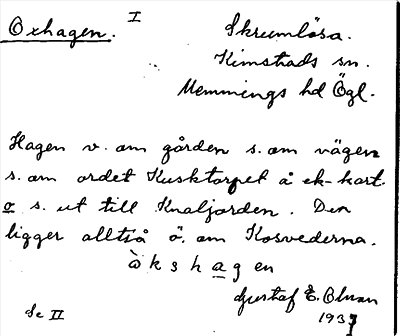 Oxhagen. I
Skrumlösa.
Kimstads sn.
Memmings hd Ögl.
Hagen v. om gården s. om vägen
s. om ordet Kusktorpet å ek-kart.
o s. ut till Knaljorden. Den
ligger alltså ö. om Kosvederna.
òkshagen
Gustaf E. Olman
1937
Se II